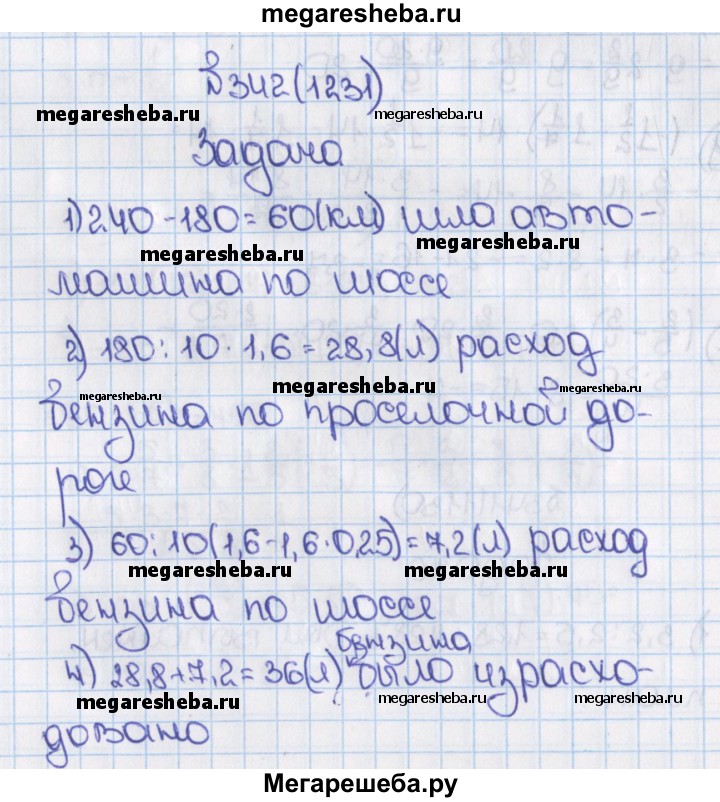 megaresheba.ru
№342(1231)
megaresheba.ru
megaresheba.ru
Задача
1) 240 - 180 = 60(км) шла авто-
megaresheba.ru
megaresheba.ru
машина по шоссе
2) 180 : 10 · 1,6 = 28,8(л) расход
megaresheba.ru
megaresheba.ru
megaresheba.ru
бензина по проселочной до-
роге
3) 60 : 10(1,6 - 1,6 · 0,25) = 7,2(л) расход
megaresheba.ru
megaresheba.ru
бензина по шоссе
бензина
4) 28,8 + 7,2 = 36(л) было израсхо-
megaresheba.ru
megaresheba.ru
довано
Мегарешеба.ру